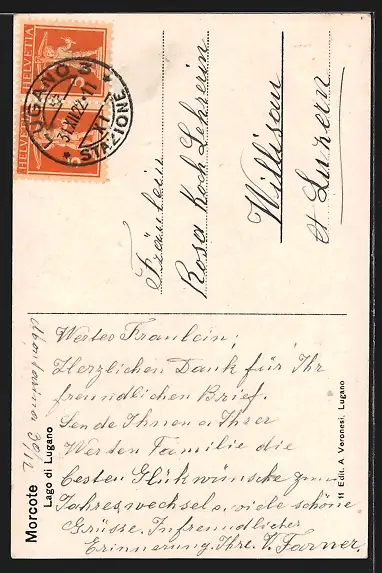 HELVETIA
HELVETIA
LUGANO
31.XII.22.-11
STAZIONE
Fräulein
Rosa Koch Lehrerin
Willisau
ct Luzern
Morcote
Lago di Lugano
30/12
11 Edit. A. Veronesi, Lugano
Wertes Fraulein,
Herzlichen Dank für Ihr
freundlichen Brief.
Sende Ihnen u Ihrer
Werten Familie die
besten Glükwünsche zum
Jahreswechsel u, viele schöne
Grüsse. In freundlicher
Erinnerung Ihre V. Farner.